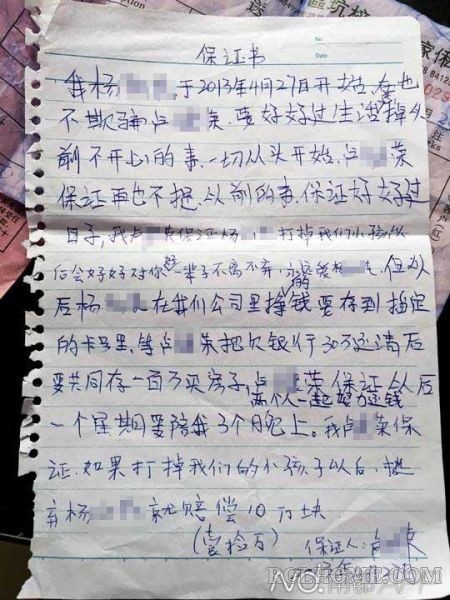 保证书
No.
Date
我杨 于2013年4月27日开始,在也
不欺骗卢 荣,要好好过生活掉从
前不开心的事,一切从头开始,卢 荣
保证再也不提,从前的事,保证好好过
日子,我卢 荣保证杨 打掉我们小孩以
后会好好对你好一辈子不离不弃,永远的爱杨 但从
后杨 在我们公司里挣钱要存到指定
的卡号里,等卢 荣把欠银行30万还清后
要共同存一百万买房子,卢 荣保证从后
两个人一起努力还钱
一个星期要陪我3个晚上。我卢 荣保
证,如果打掉我们的小孩子以后,抛
弃杨 就赔偿10万块
(壹检万)
保证人:卢 荣